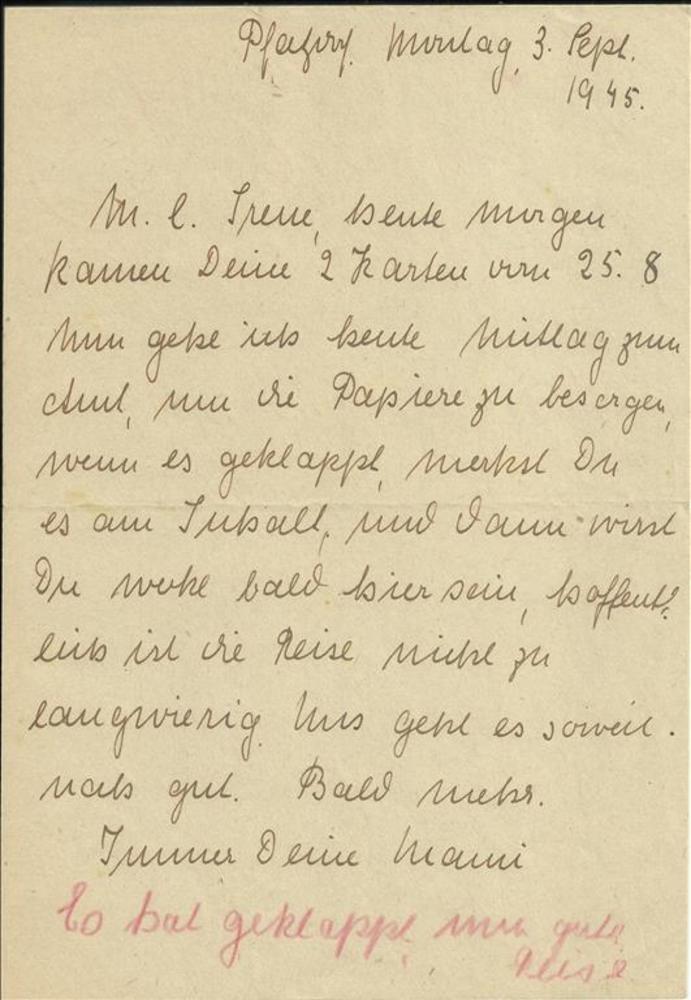 Montag, 3. Sept.
1945.
M. l. Irene, heute morgen
kamen Deine 2 Karten vom 25. 8
Nun gehe ich heute Mittag zum
Amt, um die Papiere zu besorgen,
wenn es geklappt, merkst Du
es am Inhalt, und dann wirst
Du wohl bald hier sein, hoffent-
lich ist die Reise nicht zu
langwierig. Uns geht es soweit.
nach gut. Bald mehr.
Immer Deine Mami
Es hat geklappt, nun gute
Reise